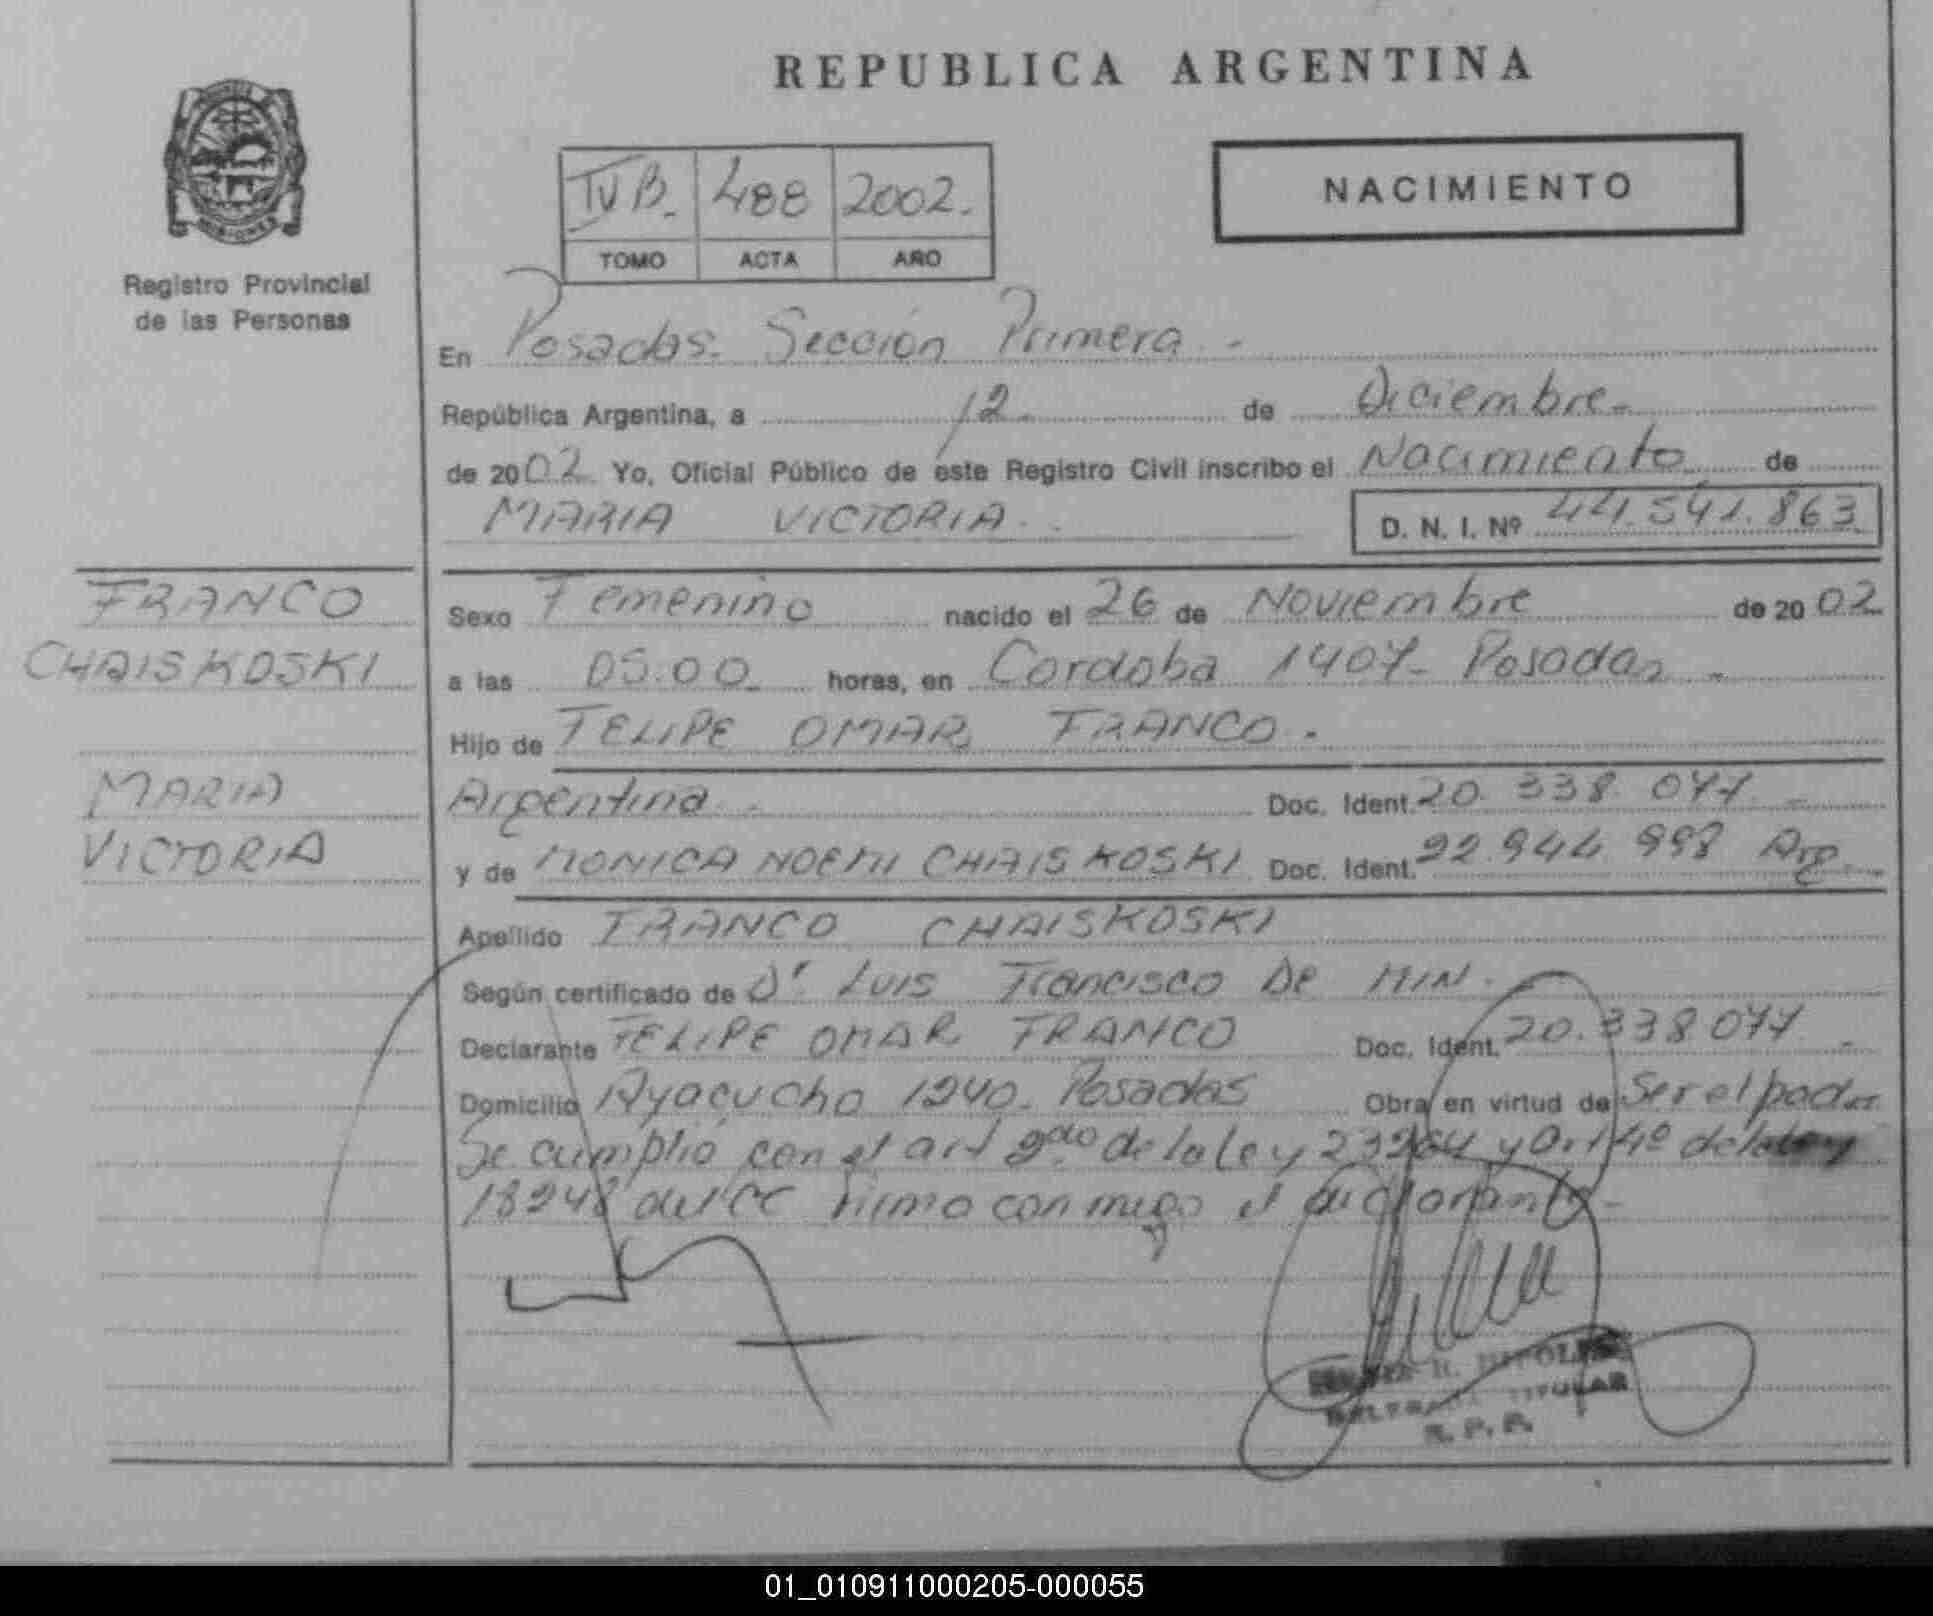 REPUBLICA ARGENTINA
MISIONES
Registro Provincial
de las Personas
IV B. 488 2002.
TOMO ACTA AÑO
NACIMIENTO
En Posadas. Sección Primera.-
República Argentina, a 12 de Diciembre-
de 2002 Yo, Oficial Público de este Registro Civil inscribo el Nacimiento de
MARIA VICTORIA. D. N. I. Nº 44.541.863
FRANCO
CHAISKOSKI
MARIA
VICTORIA
Sexo Femenino nacido el 26 de Noviembre de 2002
a las 05:00 horas, en Cordoba 1407- Posadas -
Hijo de FELIPE OMAR FRANCO.
Argentina - Doc. Ident. 20. 338 077 -
y de MONICA NOEMI CHAISKOSKI Doc. Ident. 22.944 998 Arg.
Apellido FRANCO CHAISKOSKI
Según certificado de Dr. Luis Francisco De MIN.-
Declarante FELIPE OMAR FRANCO Doc. Ident. 20.338 077 -
Domicilio Ayacucho 1240- Posadas Obra en virtud de Ser el padre
Se cumplió con el art 2do de la ley 23264 y art 4º de la ley
18248 del CC firmo conmigo el declarante-
TITULAR
R. P. P.
01_010911000205-000055